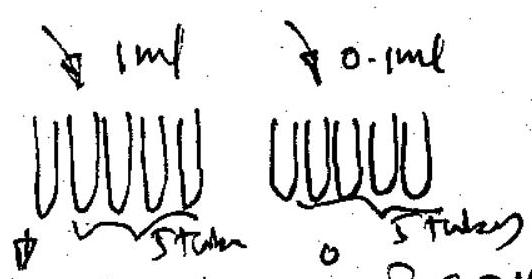 1ml 0.1ml
5 tubes 5 tubes
0